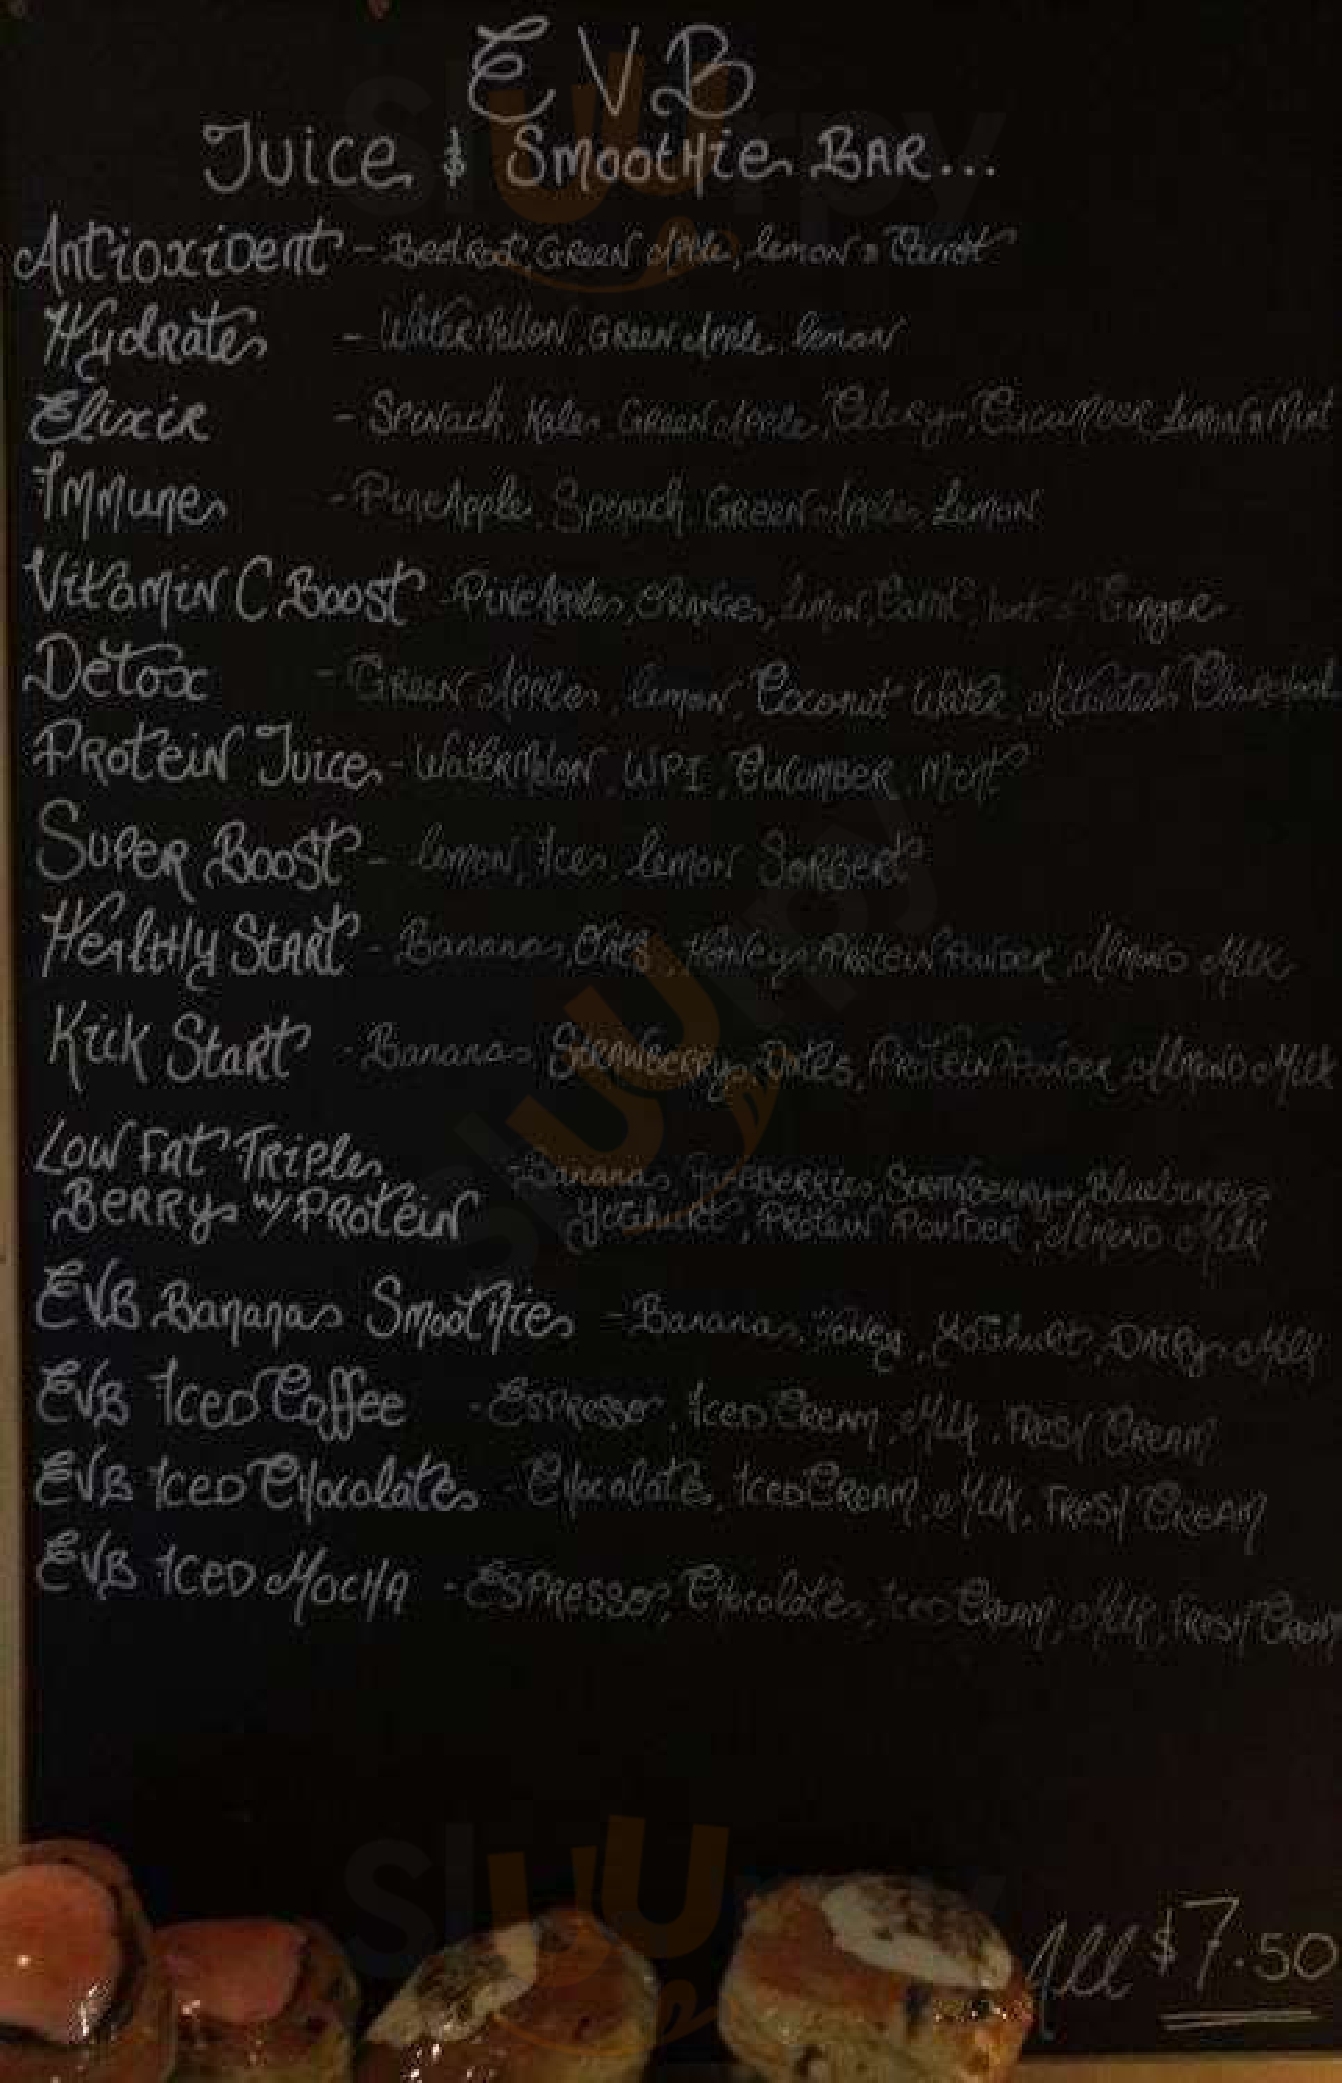 EVB
Juice & Smoothie BAR...
Antioxident - Beetroot, Green Apple, Lemon & Carrot
Hydrate - Water Mellon, Green Apple, Lemon
Elixir - Spinach, Kale, Green Apple, Celery, Cucumber, Lemon & Mint
Immune - PineApple, Spinach, Green Apple, Lemon
Vitamin C Boost - PineApple, Orange, Lemon, Carrot, hint of Ginger
Detox - Green Apple, Lemon, Coconut Water, Activated Charcoal
Protein Juice - Watermelon, WPI, Cucumber, Mint
Super Boost - Lemon, Ice, Lemon Sorbert
Healthy Start - Banana, Oats, Honey, Protein Powder, Almond Milk
Kick Start - Banana, Strawberry, Dates, Protein Powder, Almond Milk
Low Fat Triple - Banana, Strawberry, Blueberry
Berry w/ Protein Yoghurt, Protein Powder, Almond Milk
EVB Banana Smoothie - Banana, Honey, Yoghurt, Dairy Milk
EVB Iced Coffee - Espresso, Iced Cream, Milk, Fresh Cream
EVB Iced Chocolate - Chocolate, Iced Cream, Milk, Fresh Cream
EVB Iced Mocha - Espresso, Chocolate, Iced Cream, Milk, Fresh Cream
All $7.50
sluurpy
sluurpy
sluurpy